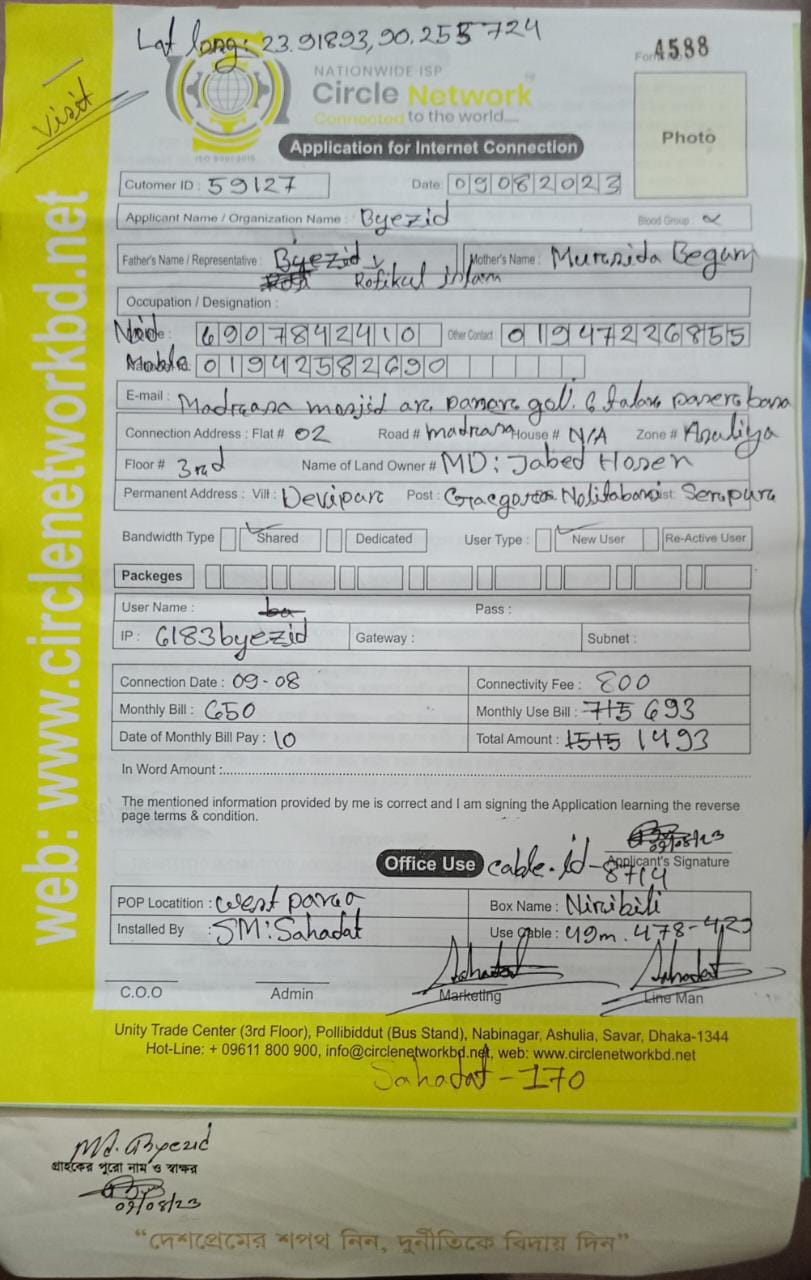 Lat long: 23.91893, 90.255724
Visit
Form 4588
NATIONWIDE ISP
Circle Network
Connected to the world....
ISO 9001:2015
Photo
Application for Internet Connection
Cutomer ID : 59127 Date: 09082023
Applicant Name / Organization Name : Byezid Blood Group :
Father's Name / Representative : Byezid Mother's Name : Murasida Begum
Rofikul inlam
Occupation / Designation :
Nid : 6907842410 Other Contact : 01947226855
Mobile 01942582690
E-mail : Madrasa mosjid
Connection Address : Flat # 02 Road # madrasa House # N/A Zone # Asuliya
Floor # 3rd Name of Land Owner # MD: Jabed Hosen
Permanent Address : Vill : Devipare Post :
Bandwidth Type Shared Dedicated User Type : New User Re-Active User
Packeges
User Name : Pass :
IP : 6183byezid Gateway : Subnet :
Connection Date : 09-08 Connectivity Fee : 800
Monthly Bill : 650 Monthly Use Bill : 715 693
Date of Monthly Bill Pay : 10 Total Amount : 1515 1493
In Word Amount :
The mentioned information provided by me is correct and I am signing the Application learning the reverse
page terms & condition.
09/08/23
Office Use cable.id-8714 Applicant's Signature
POP Locatition : west para Box Name : Niribili
Installed By : SM: Sahadat Use Cable : 49m. 478-429
Sahadat Sahadat
C.O.O Admin Marketing Line Man
Unity Trade Center (3rd Floor), Pollibiddut (Bus Stand), Nabinagar, Ashulia, Savar, Dhaka-1344
Hot-Line: + 09611 800 900, info@circlenetworkbd.net, web: www.circlenetworkbd.net
Sahadat - 170
web: www.circlenetworkbd.net
Md. Byezid
গ্রাহকের পুরো নাম ও স্বাক্ষর
09/08/23
“দেশপ্রেমের শপথ নিন, দুর্নীতিকে বিদায় দিন”